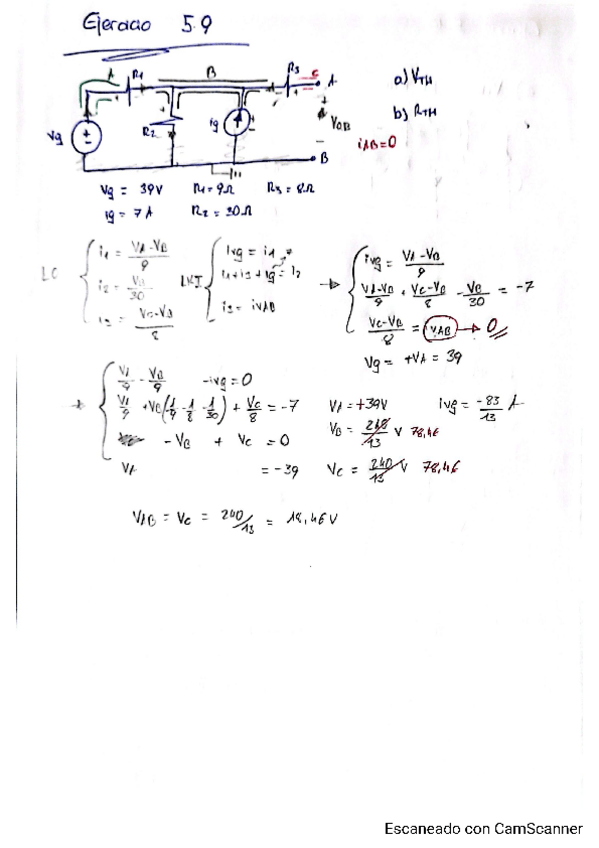 Ejercicio 5.9
A R1 B R3 C A
a) VTH
Vg R2 ig
b) RTH
iAB=0
B
Vg = 39V R1=9Ω R3=8Ω
ig = 7A R2=30Ω
i1 = VA-VB/9
i2 = VB/30
i3 = VC-VB/8
LKI
ivg = i1
i1+i3+ig = i2
i3 = iVAB
ivg = VA-VB/9
VA-VB/9 + VC-VB/8 - VB/30 = -7
VC-VB/8 = iVAB → 0
Vg = +VA = 39
VA/9 - VB/9 -ivg=0
VA/9 +VB(-1/9 -1/8 -1/30) + VC/8 = -7
-VB + VC =0
VA = -39
VA=+39V ivg= -83/13 A
VB = 13 V 78,46
VC = 240/13 V 78,46
VAB = VC = 240/13 = 18,46V
Escaneado con CamScanner